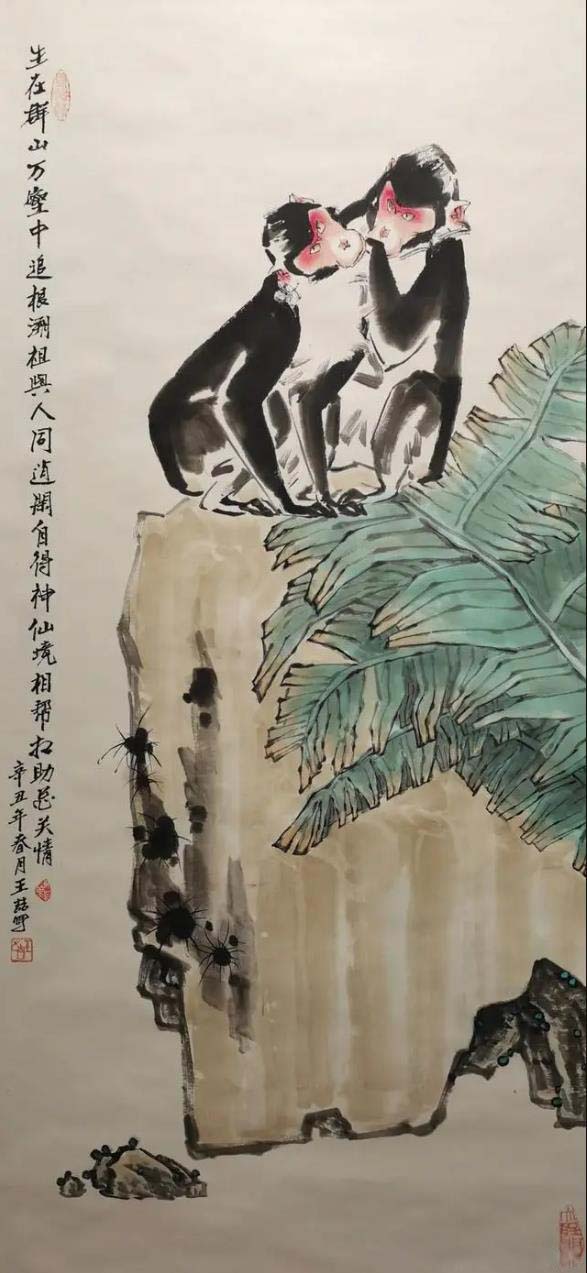 生在群山万壑中追根溯祖與人同逍闲自得神仙境相帮相助总关情
辛丑年春月王喆寫